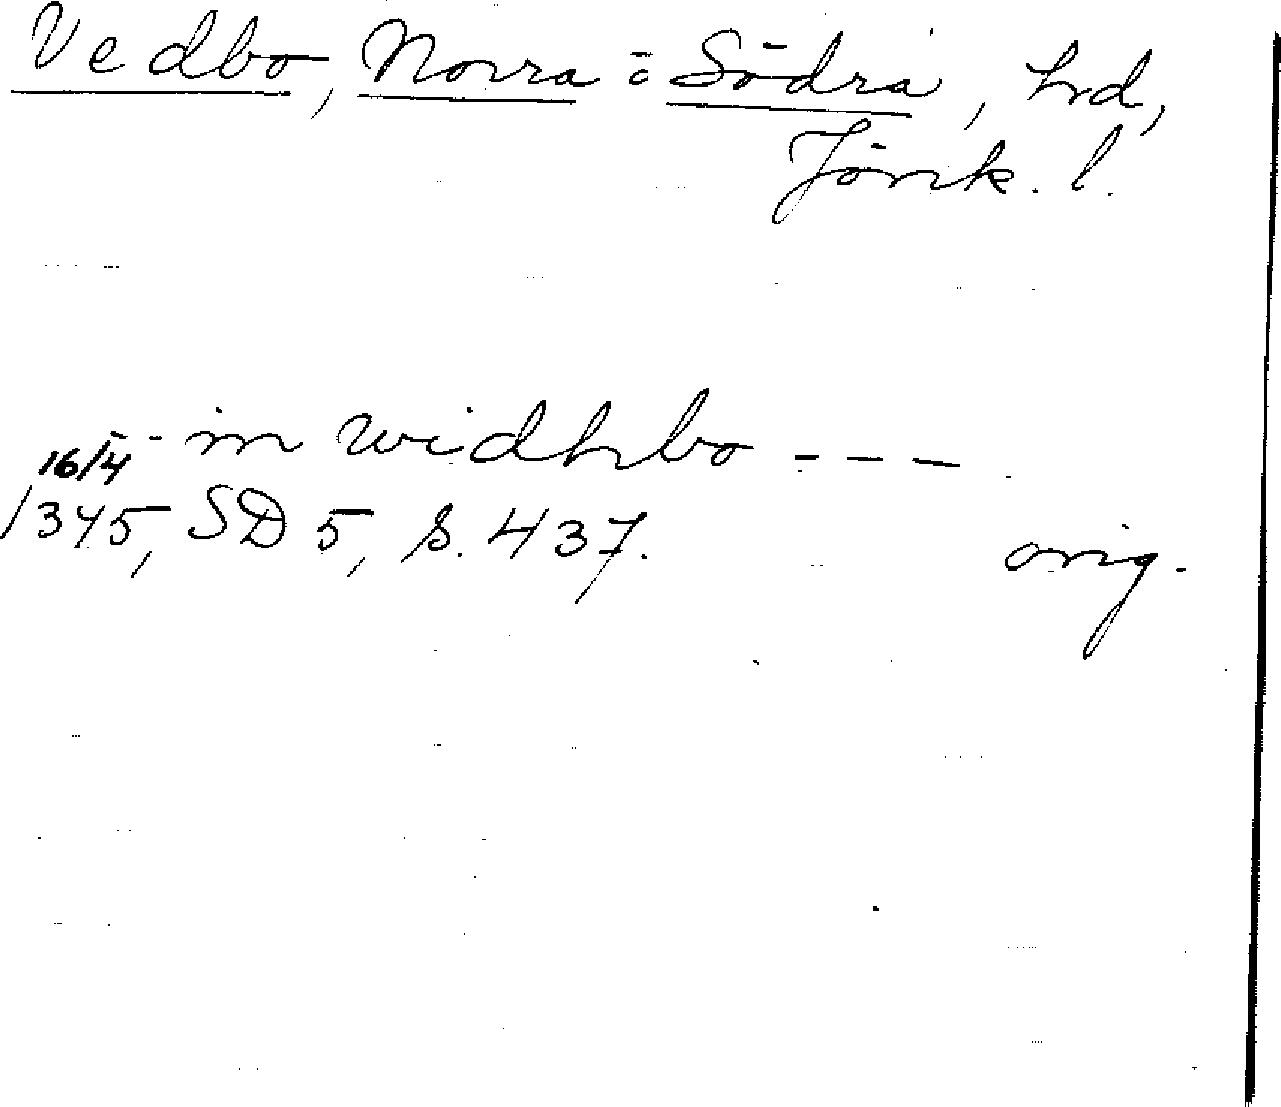 Vedbo, Norra o Södra, hd,
Jönk. l.
- - in widhbo - - -
16/4
1345, SD 5, s. 437.
orig.